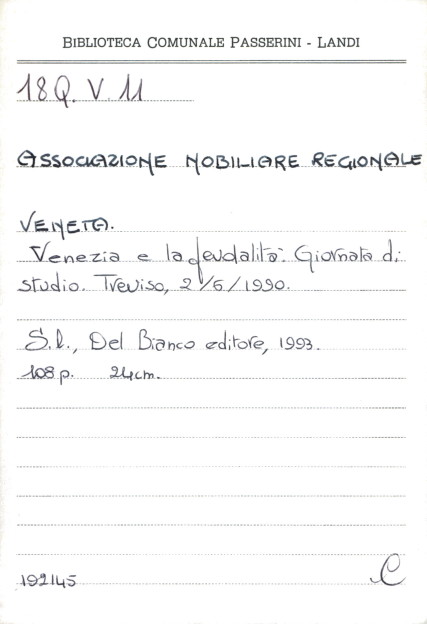 BIBLIOTECA COMUNALE PASSERINI - LANDI
18Q. V. 11
ASSOCIAZIONE NOBILIARE REGIONALE
VENETA.
Venezia e la feudalità. Giornata di
studio. Treviso, 2/6/1990.
S.l., Del Bianco editore, 1993.
108 p. 24cm.
192145
C